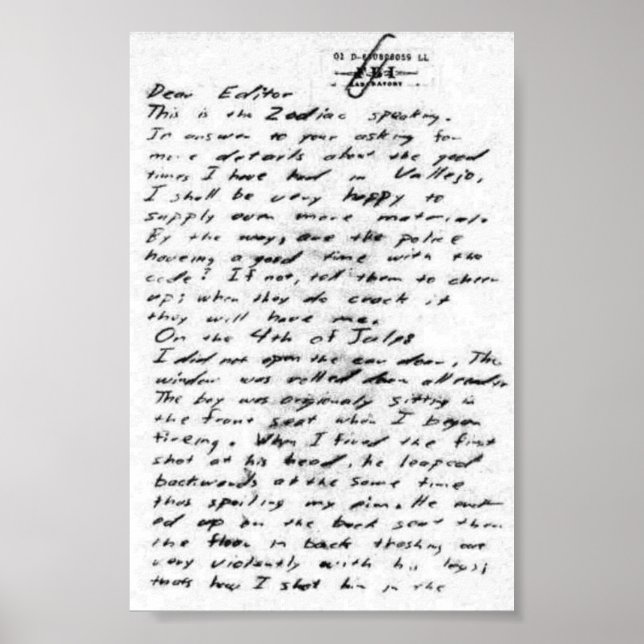 01 D-690808059 LL
FBI
LABORATORY
Dear Editor
This is the Zodiac speaking.
In answer to your asking for
more details about the good
times I have had in Vallejo,
I shall be very happy to
supply even more material.
By the way, are the police
haveing a good time with the
code? If not, tell them to cheer
up; when they do crack it
they will have me.
On the 4th of July:
I did not open the car door, The
window was rolled down all ready.
The boy was origionaly sitting in
the front seat when I began
fireing. When I fired the first
shot at his head, he leaped
backwards at the same time
thus spoiling my aim. He end-
ed up on the back seat then
the floor in back thashing out
very violently with his legs;
thats how I shot him in the